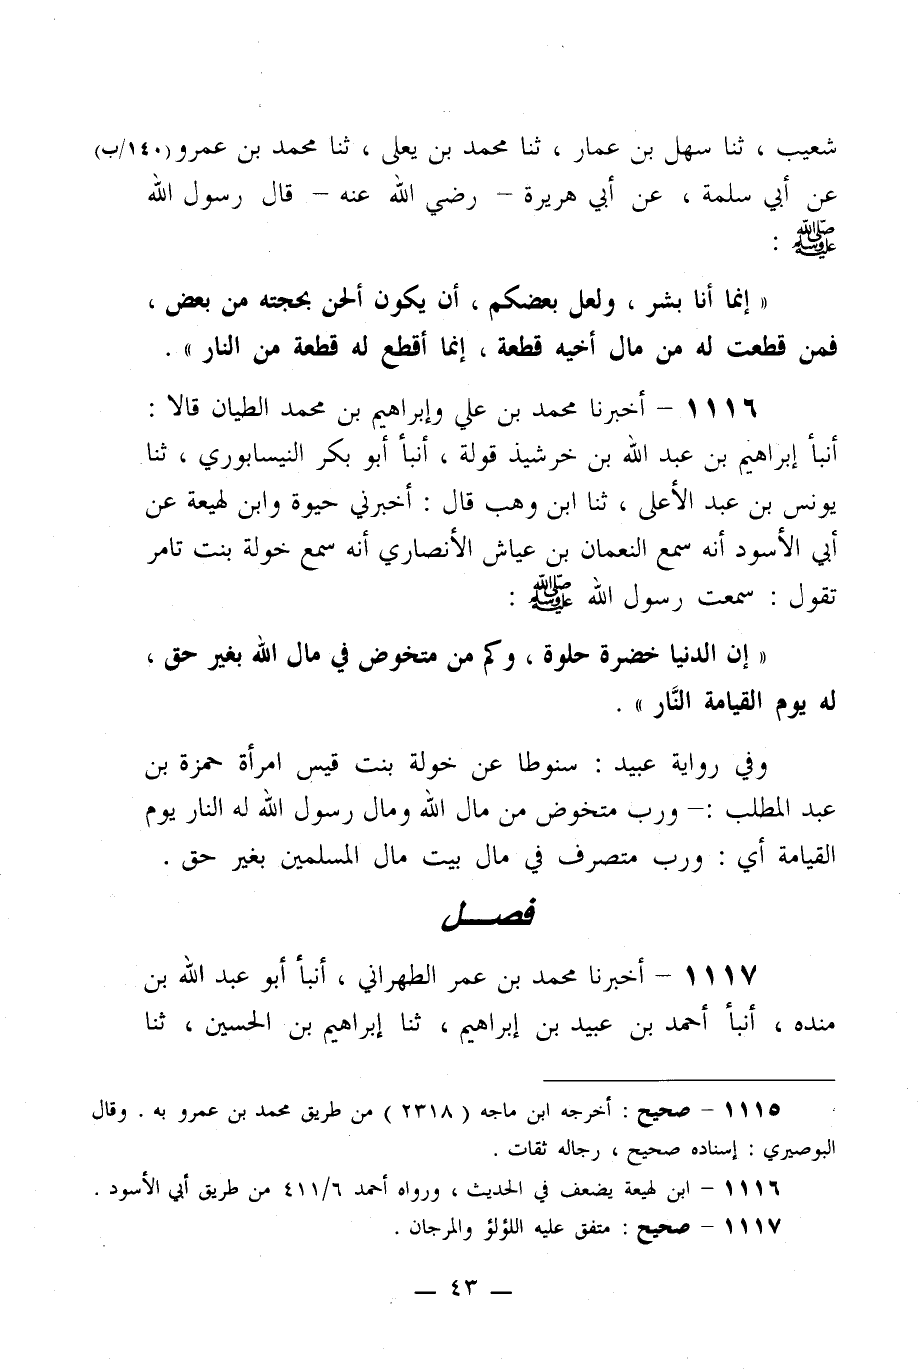 شعيب ، ثنا سهل بن عمار ، ثنا محمد بن يعلى ، ثنا محمد بن عمرو (١٤٠/ب)
عن أبي سلمة ، عن أبي هريرة – رضي الله عنه – قال رسول الله
ﷺ :
« إنما أنا بشر ، ولعل بعضكم ، أن يكون ألحن بحجته من بعض ،
فمن قطعت له من مال أخيه قطعة ، إنما أقطع له قطعة من النار » .
١١١٦ – أخبرنا محمد بن علي وإبراهيم بن محمد الطيان قالا :
أنبأ إبراهيم بن عبد الله بن خرشيذ قولة ، أنبأ أبو بكر النيسابوري ، ثنا
يونس بن عبد الأعلى ، ثنا ابن وهب قال : أخبرني حيوة وابن لهيعة عن
أبي الأسود أنه سمع النعمان بن عياش الأنصاري أنه سمع خولة بنت تامر
تقول : سمعت رسول الله ﷺ :
« إن الدنيا خضرة حلوة ، وكم من متخوض في مال الله بغير حق ،
له يوم القيامة النَّار » .
وفي رواية عبيد : سنوطا عن خولة بنت قيس امرأة حمزة بن
عبد المطلب :– ورب متخوض من مال الله ومال رسول الله له النار يوم
القيامة أي : ورب متصرف في مال بيت مال المسلمين بغير حق .
فصـــل
١١١٧ – أخبرنا محمد بن عمر الطهراني ، أنبأ أبو عبد الله بن
منده ، أنبأ أحمد بن عبيد بن إبراهيم ، ثنا إبراهيم بن الحسين ، ثنا
١١١٥ – صحيح : أخرجه ابن ماجه ( ٢٣١٨ ) من طريق محمد بن عمرو به . وقال
البوصيري : إسناده صحيح ، رجاله ثقات .
١١١٦ – ابن لهيعة يضعف في الحديث ، ورواه أحمد ٤١١/٦ من طريق أبي الأسود .
١١١٧ – صحيح : متفق عليه اللؤلؤ والمرجان .
— ٤٣ —